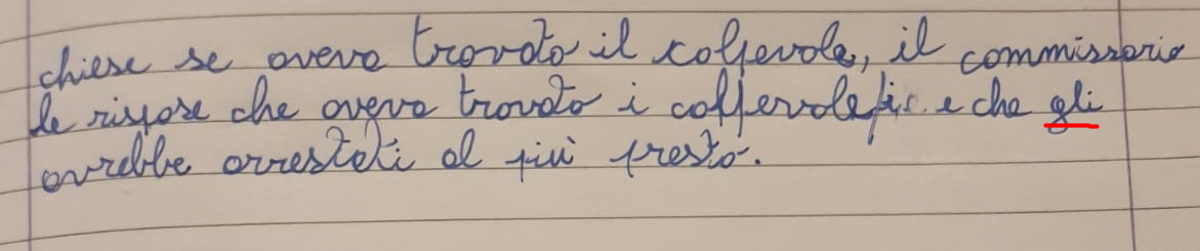 chiese se aveva trovato il colpevole, il commissario
le rispose che aveva trovato i colpevoli e che gli
avrebbe arrestati al più presto.